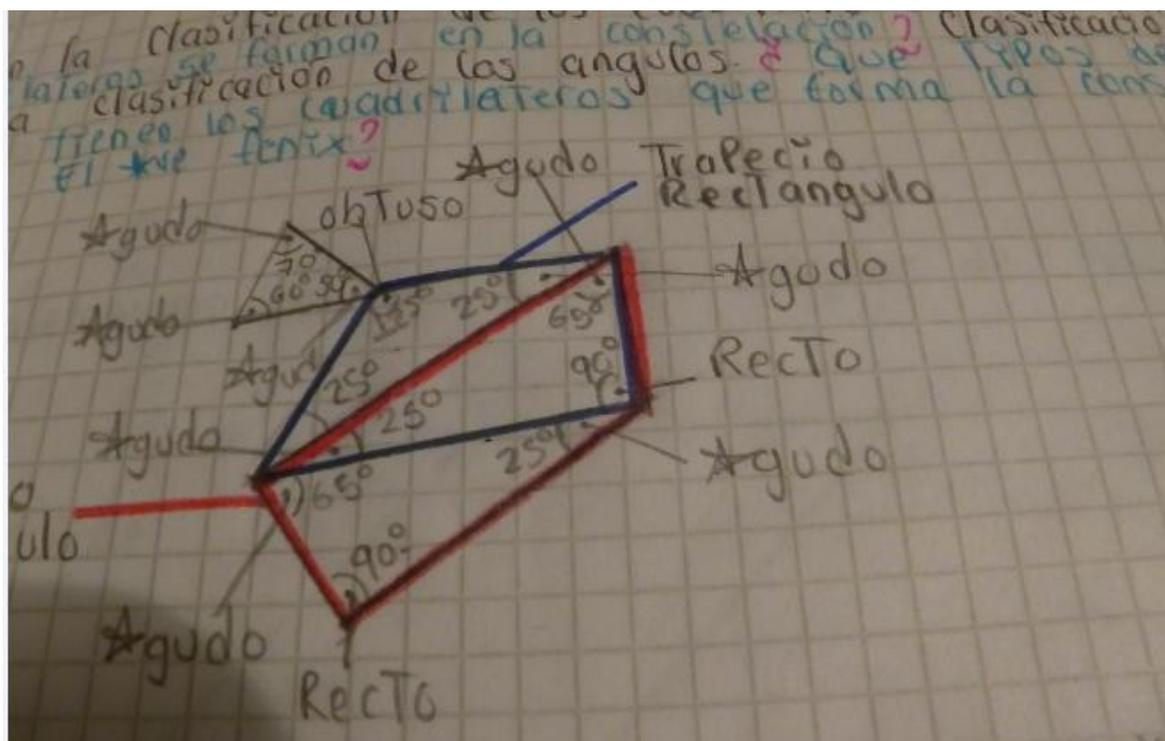 la clasificación de los
lateros se forman en la constelación? Clasificacio
a clasificación de los angulos. ¿ Que Tipos de
tienen los cuadrilateros que forma la cons
El Ave fenix?
Agudo Trapecio
Rectangulo
Agudo obTuso
70°
60° 50°
Agudo
Agudo
125° 25° 65°
Agudo
90° RecTo
25° 25°
Agudo
25° Agudo
65°
O
ulo
90°
Agudo
RecTo